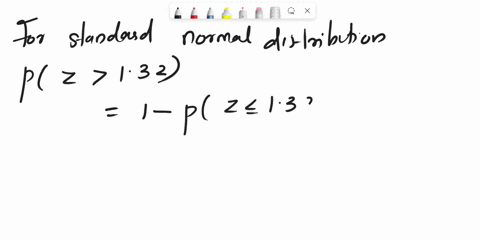 For standard normal distribution
p( z > 1.32)
= 1 - p( z ≤ 1.3